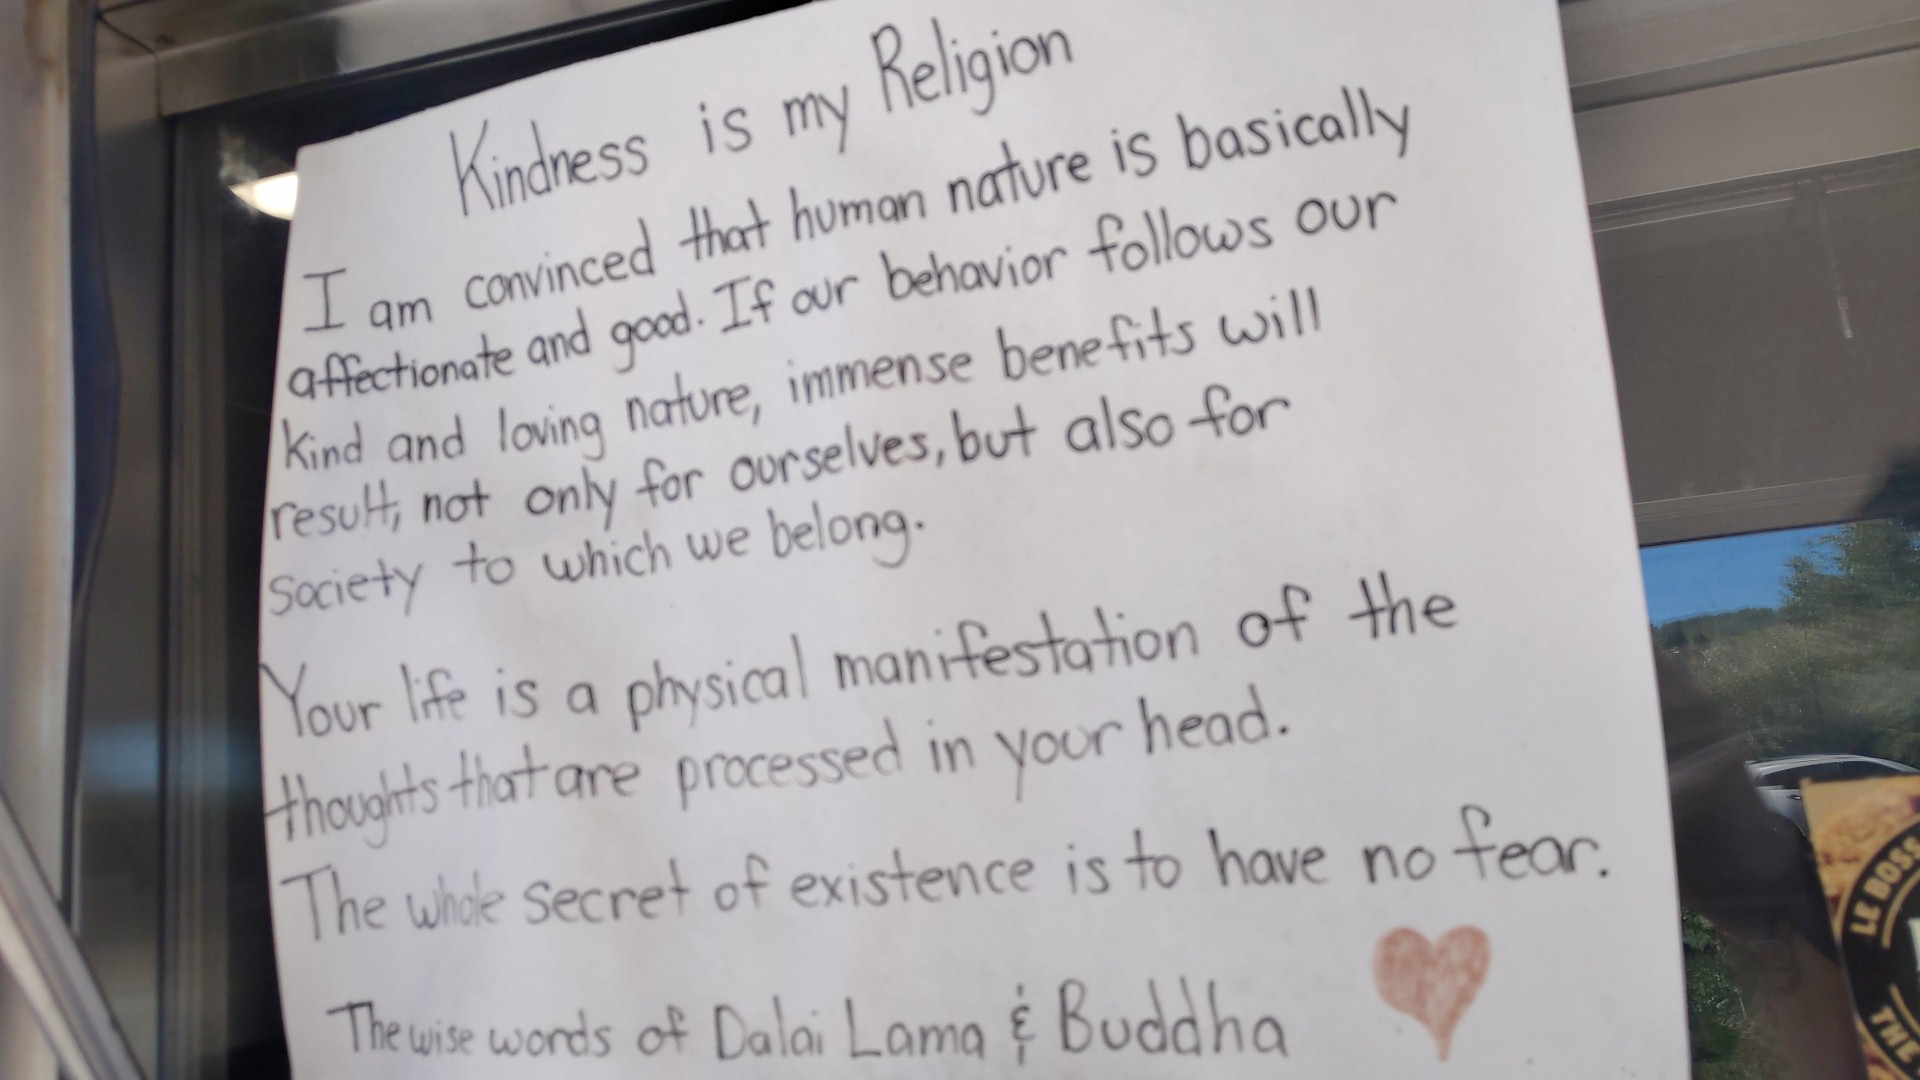 Kindness is my Religion
I am convinced that human nature is basically
affectionate and good. If our behavior follows our
kind and loving nature, immense benefits will
result, not only for ourselves, but also for
society to which we belong.
Your life is a physical manifestation of the
thoughts that are processed in your head.
The whole secret of existence is to have no fear.
The wise words of Dalai Lama & Buddha
LE BOSS
THE